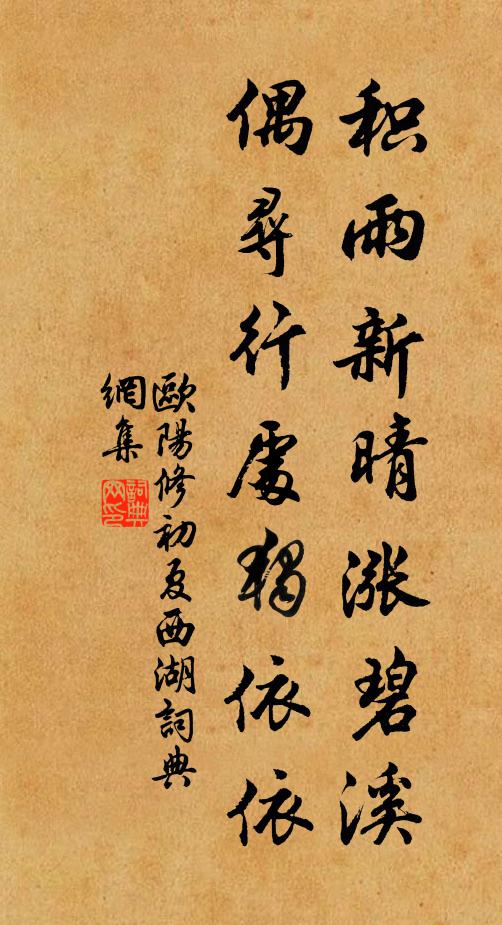 积雨新晴涨碧溪
偶尋行處獨依依
歐陽修初夏西湖詞典
網集
詞典
网印